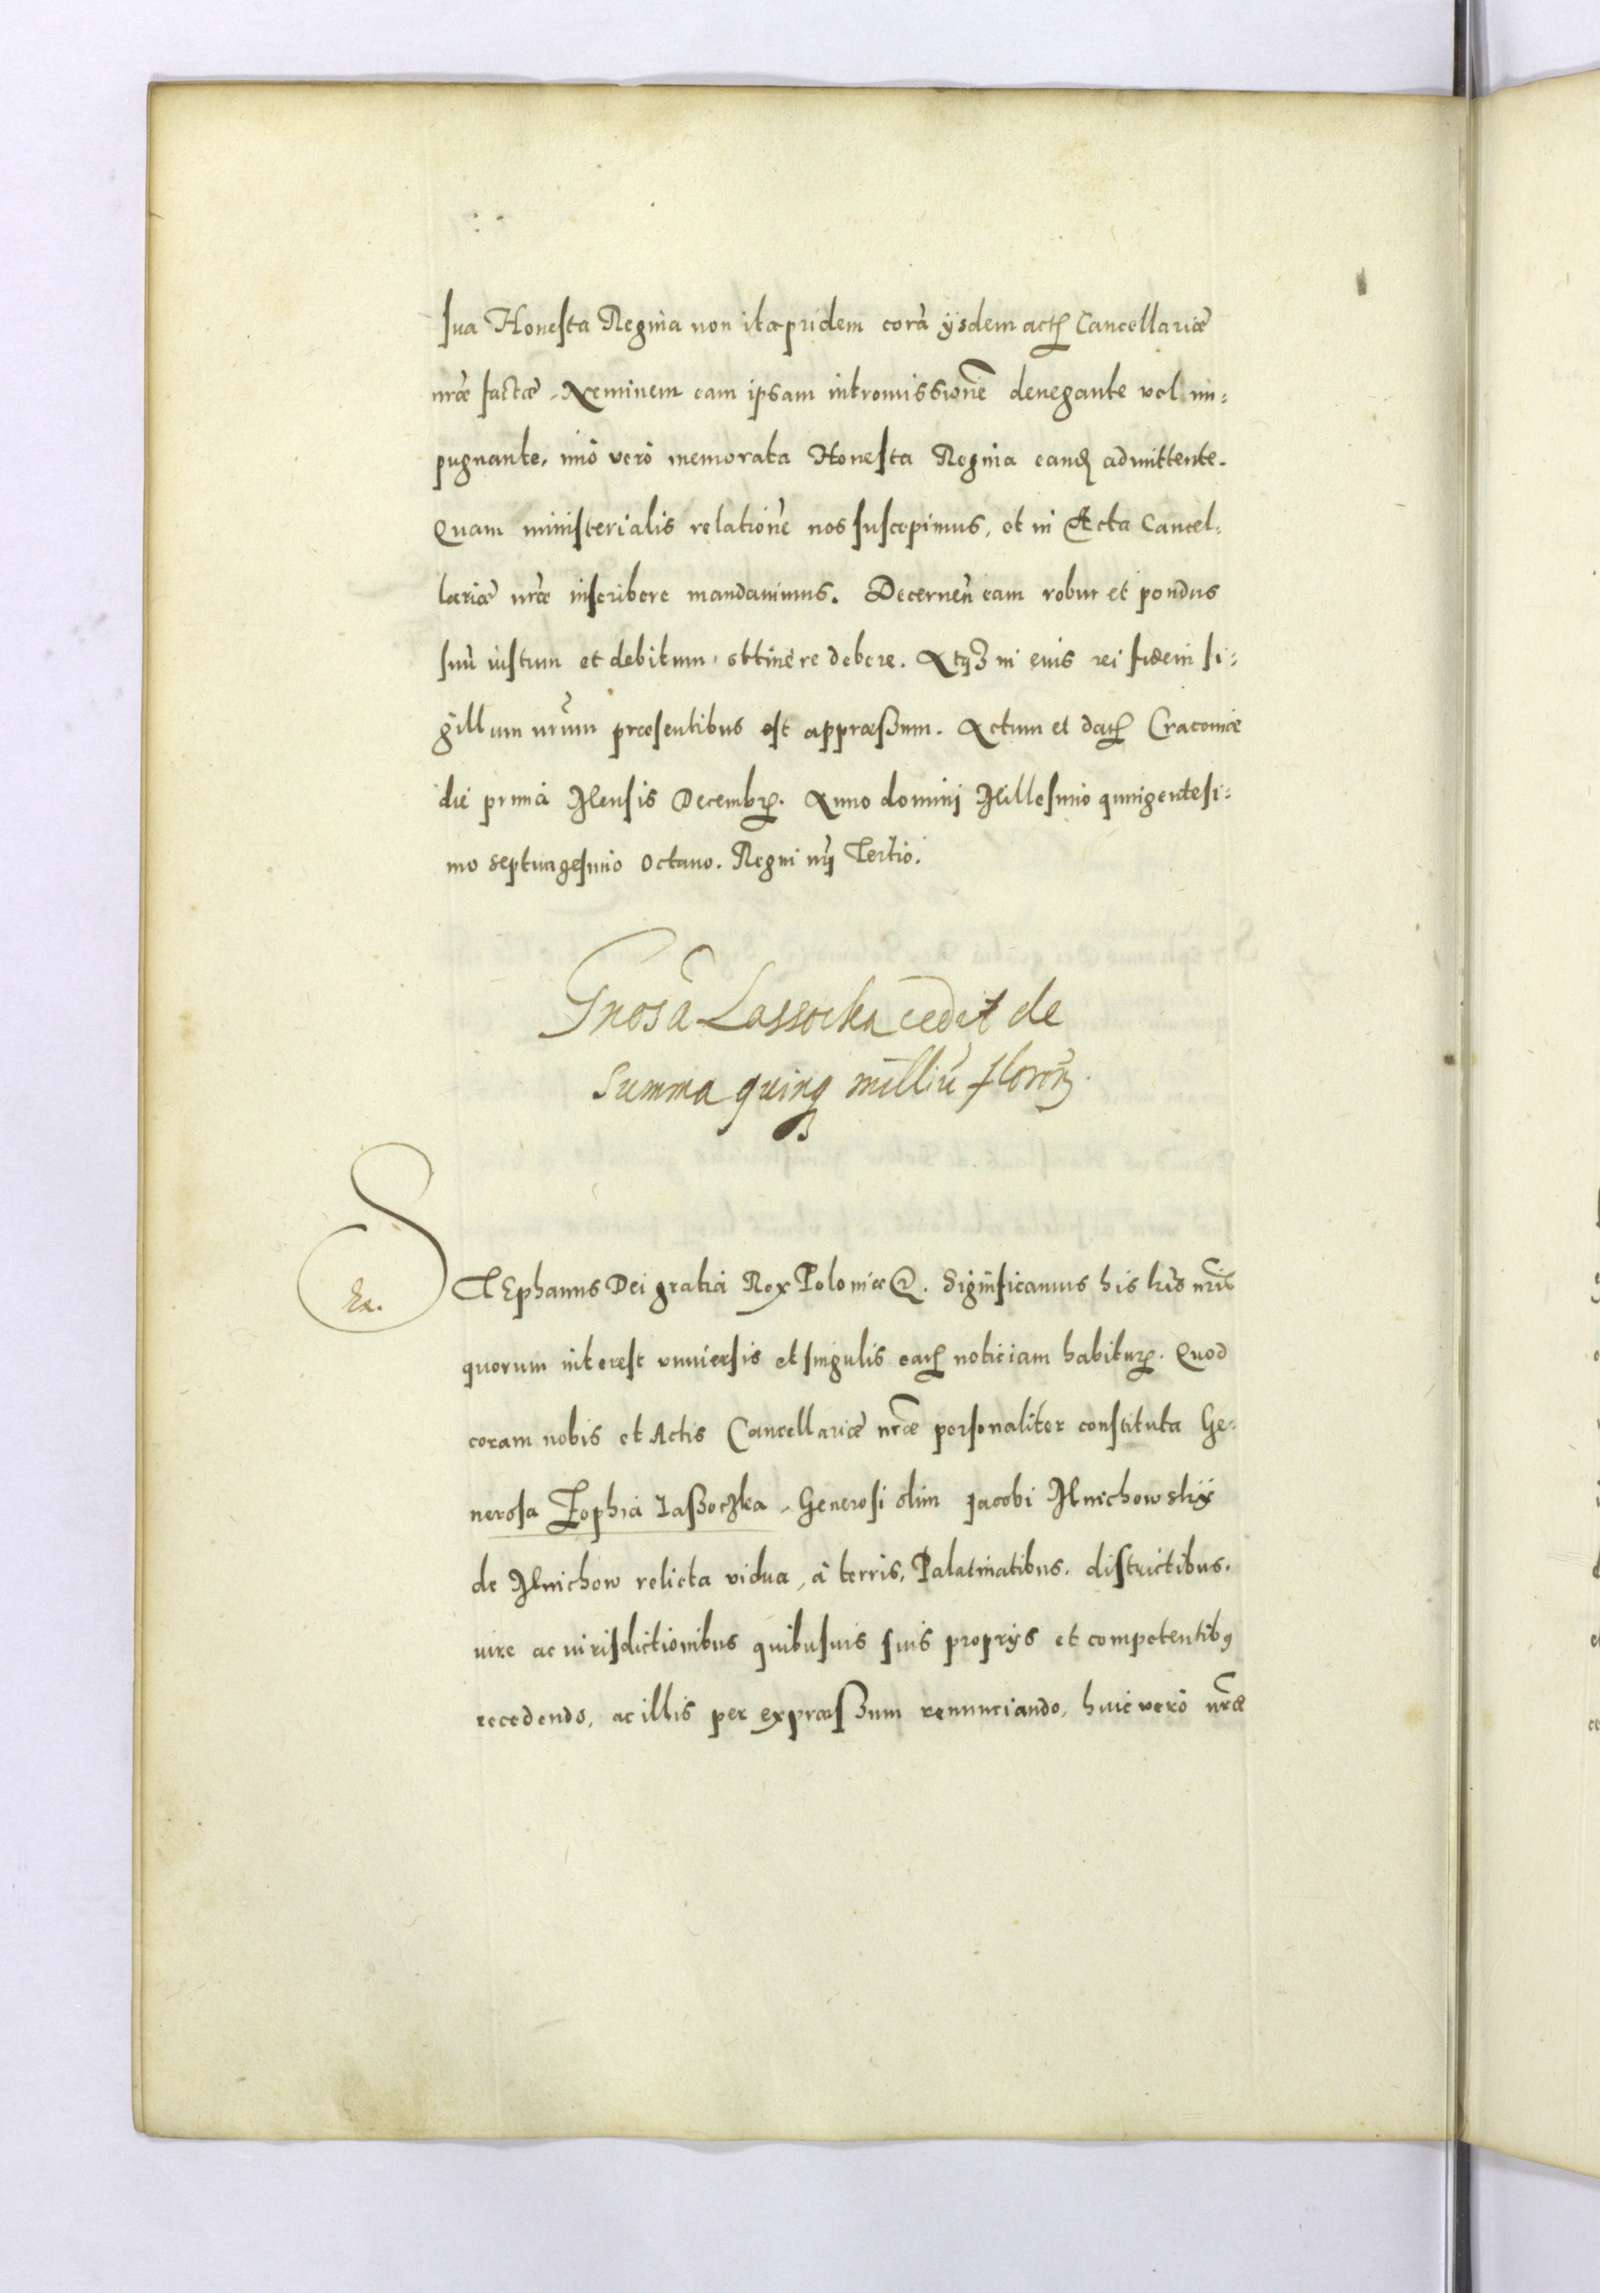 sua Honesta Regina non ita pridem corā ijsdem actis Cancellariæ
nr̃æ factæ, Neminem eam ipsam intromissionē denegante vel im=
pugnante, imò verò memorata Honesta Regina eand admittente.
Quam ministerialis relationē nos suscepimus, et in Acta Cancel=
lariæ nr̃æ inscribere mandavimus. Decernen̄ eam robur et pondus
suū iustum et debitum obtinere debere. Atq3 in eius rei fidem si=
gillum nr̃um præsentibus est appræßum. Actum et dat Cracoviæ
die prima Mensis Decembr. Anno dominj Millesimo quingentesi=
mo septuagesimo octavo. Regni nr̃j Tertio.
Gnosa Lassocka cedit de
summa quinq3 milliū floren
Ex.
STEphanus Dei gratia Rex Poloniæ &. Significamus his lr̃is nr̃is
quorum interest universis et singulis ear noticiam habitur. Quod
coram nobis et Actis Cancellariæ nr̃æ personaliter constituta Ge=
nerosa Zophia Laßoczka, Generosi olim Jacobi Mnichowskij
de Mnichow relicta vidua, à terris, Palatinatibus, districtibus,
iure ac iurisdictionibus quibusvis suis proprijs et competentib9
recedendo, ac illis per expræßum renunciando, huic verò nr̃æ